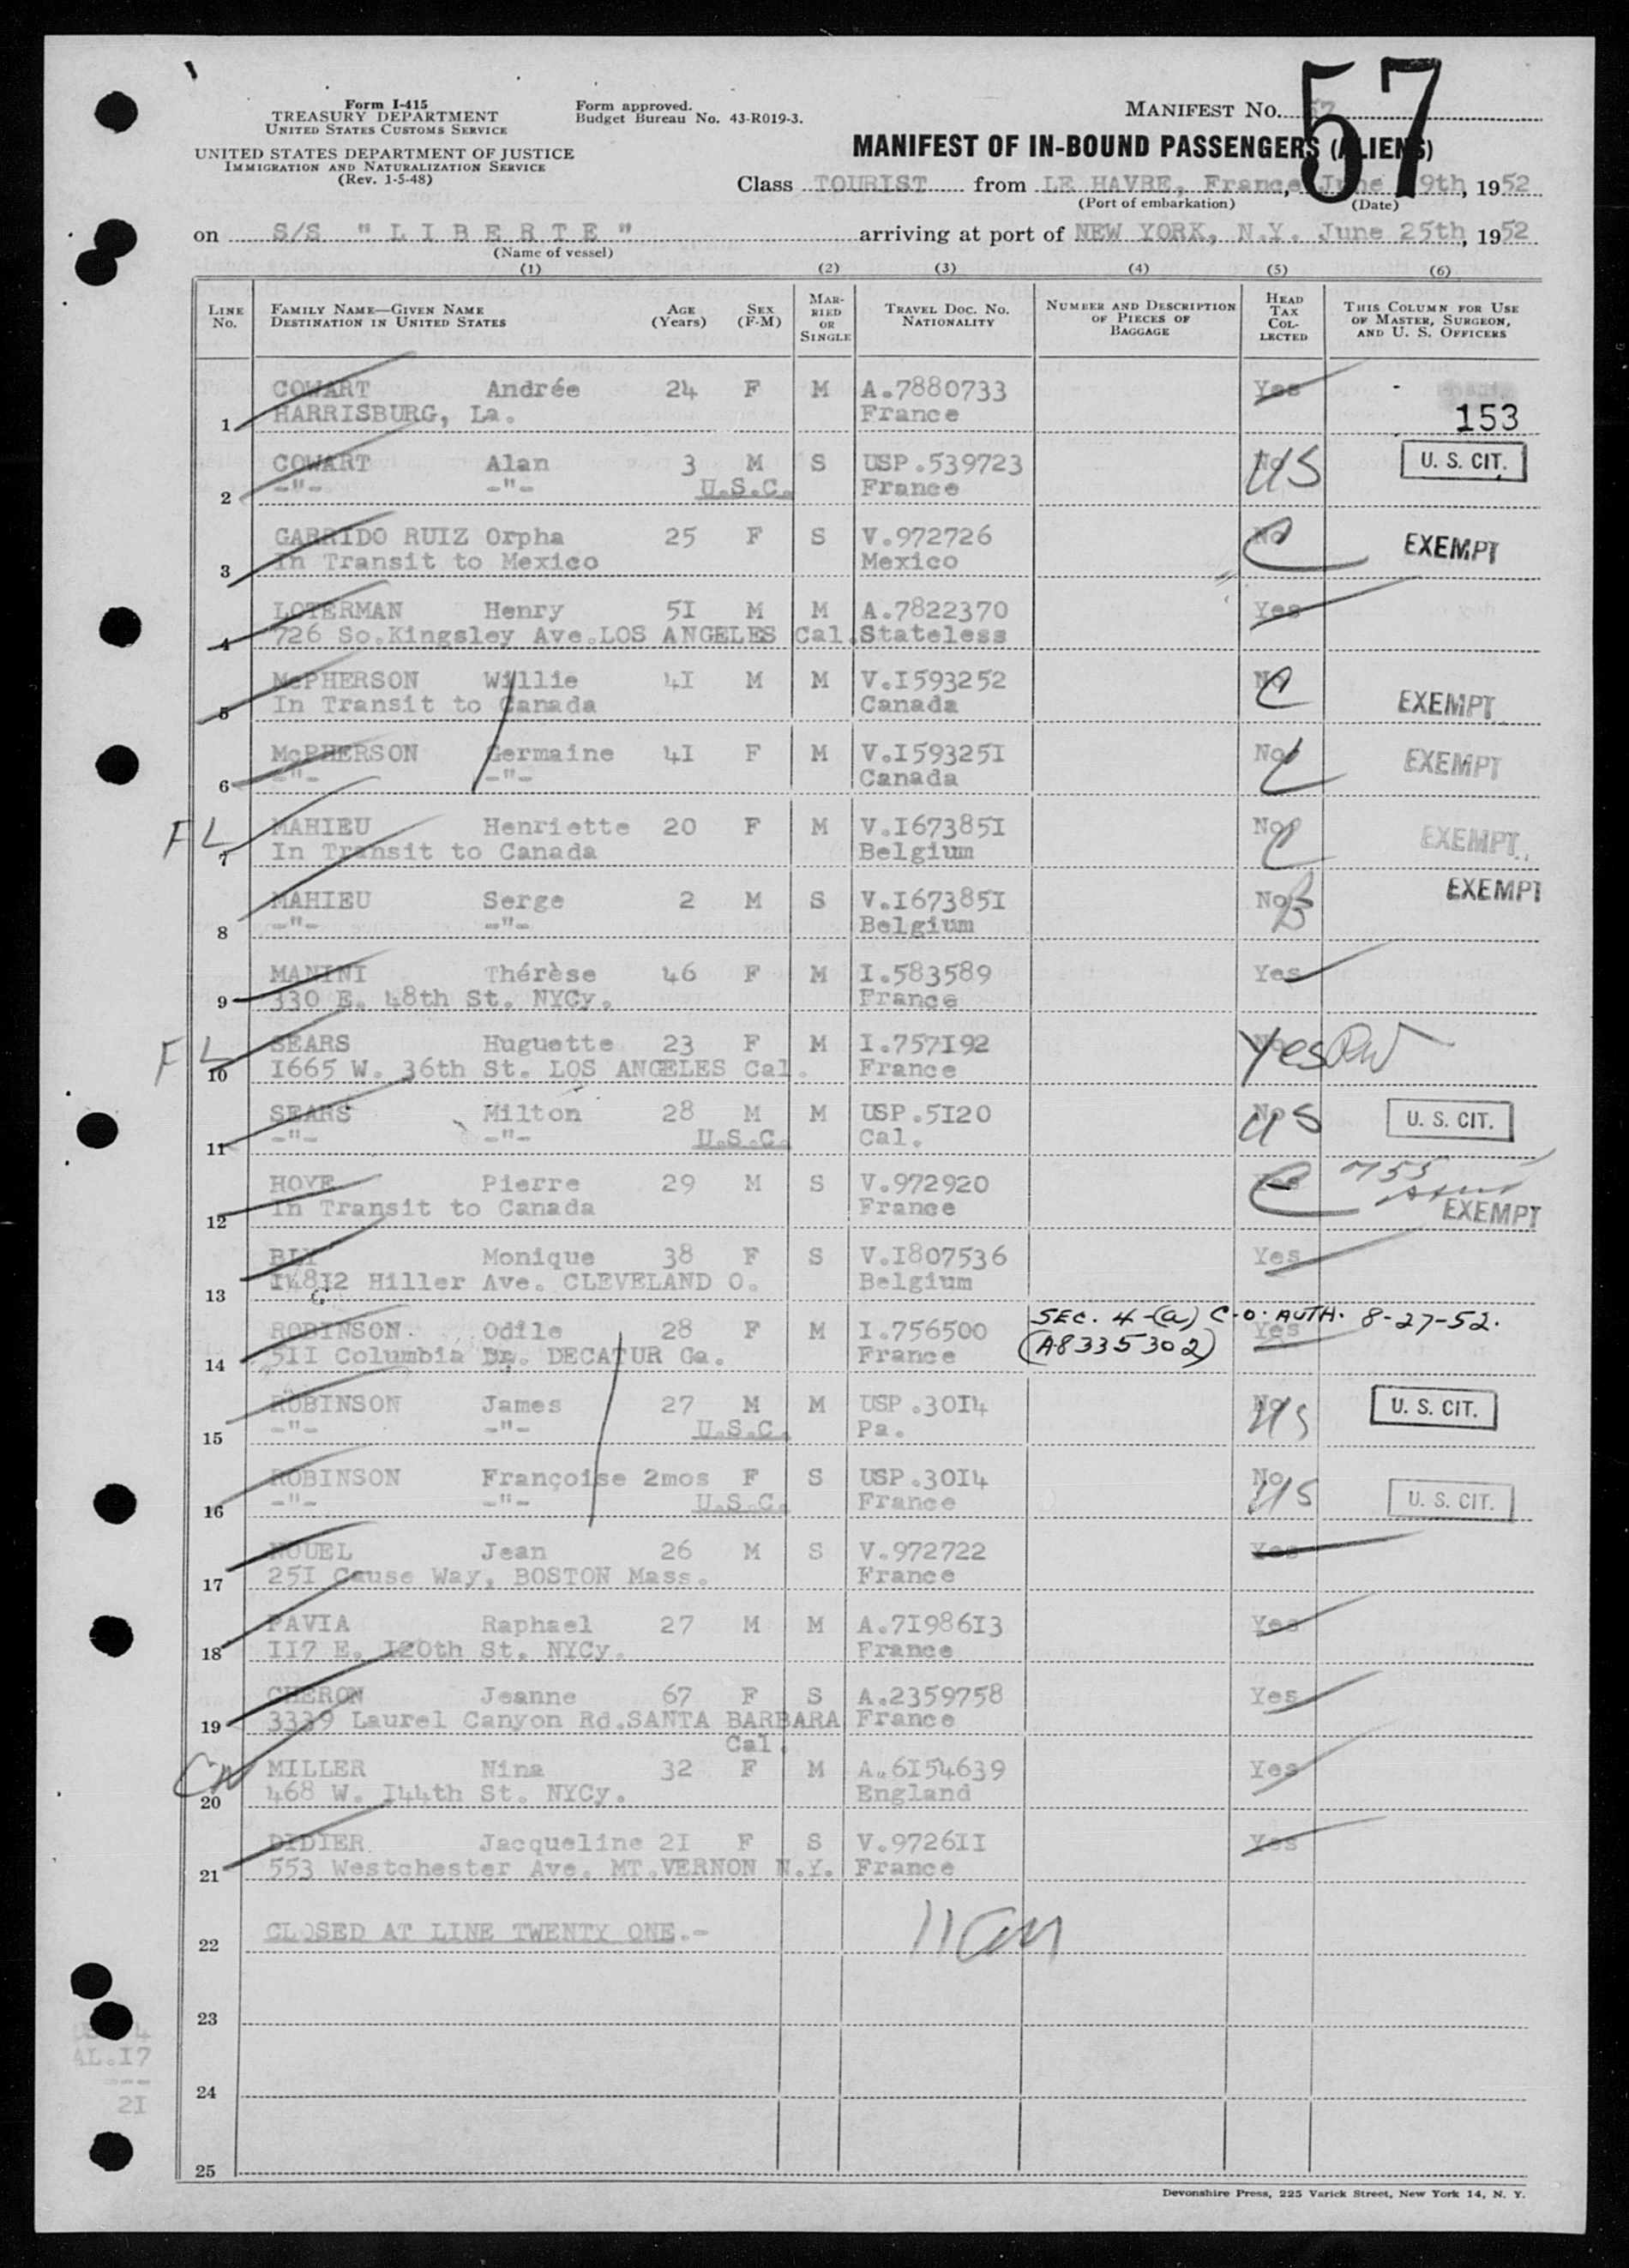 57
Form I-415
TREASURY DEPARTMENT
UNITED STATES CUSTOMS SERVICE
UNITED STATES DEPARTMENT OF JUSTICE
IMMIGRATION AND NATURALIZATION SERVICE
(Rev. 1-5-48)
Form approved.
Budget Bureau No. 43-R019-3.
MANIFEST NO. 57
MANIFEST OF IN-BOUND PASSENGERS (ALIENS)
Class TOURIST from LE HAVRE, France, June 19th, 1952
(Port of embarkation) (Date)
on S/S "LIBERTE" arriving at port of NEW YORK, N.Y. June 25th, 1952
(Name of vessel)
(1) (2) (3) (4) (5) (6)
LINE No. FAMILY NAME—GIVEN NAME DESTINATION IN UNITED STATES AGE (Years) SEX (F-M) MARRIED OR SINGLE TRAVEL DOC. NO. NATIONALITY NUMBER AND DESCRIPTION OF PIECES OF BAGGAGE HEAD TAX COLLECTED THIS COLUMN FOR USE OF MASTER, SURGEON, AND U. S. OFFICERS
COWART Andrée 24 F M A.7880733 Yes
1 HARRISBURG, La. France 153
COWART Alan 3 M S USP.539723 No US U. S. CIT.
2 -"- -"- U.S.C. France
GARRIDO RUIZ Orpha 25 F S V.972726 No C EXEMPT
3 In Transit to Mexico Mexico
LOTERMAN Henry 5I M M A.7822370 Yes
4 726 So.Kingsley Ave.LOS ANGELES Cal. Stateless
McPHERSON Willie 4I M M V.I593252 No C
5 In Transit to Canada Canada EXEMPT
McPHERSON Germaine 4I F M V.I59325I No C EXEMPT
6 -"- -"- Canada
F L MAHIEU Henriette 20 F M V.I67385I No C EXEMPT
7 In Transit to Canada Belgium
MAHIEU Serge 2 M S V.I67385I No EXEMPT
8 -"- -"- Belgium
MANINI Thérèse 46 F M I.583589 Yes
9 330 E. 48th St. NYCy. France
F L SEARS Huguette 23 F M I.757I92 No Yes
10 I665 W. 36th St. LOS ANGELES Cal. France
SEARS Milton 28 M M USP.5I20 No US U. S. CIT.
11 -"- -"- U.S.C. Cal.
HOYE Pierre 29 M S V.972920 C 755
12 In Transit to Canada France EXEMPT
BLY Monique 38 F S V.I807536 Yes
13 I48I2 Hiller Ave. CLEVELAND O. Belgium
SEC. 4-(a) C.O. AUTH. 8-27-52.
ROBINSON Odile 28 F M I.756500 (A8335302) Yes
14 5II Columbia Dr. DECATUR Ga. France
ROBINSON James 27 M M USP.30I4 No US U. S. CIT.
15 -"- -"- U.S.C. Pa.
ROBINSON Françoise 2mos F S USP.30I4 No US U. S. CIT.
16 -"- -"- U.S.C. France
NOUEL Jean 26 M S V.972722 Yes
17 25I Cause Way, BOSTON Mass. France
PAVIA Raphael 27 M M A.7I986I3 Yes
18 II7 E. I20th St. NYCy. France
CHERON Jeanne 67 F S A.2359758 Yes
19 3339 Laurel Canyon Rd.SANTA BARBARA France
Cal.
MILLER Nina 32 F M A.6I54639 Yes
20 468 W. I44th St. NYCy. England
DIDIER Jacqueline 2I F S V.9726II Yes
21 553 Westchester Ave. MT.VERNON N.Y. France
22 CLOSED AT LINE TWENTY ONE.-
23
AL.I7
24
2I
25
Devonshire Press, 225 Varick Street, New York 14, N. Y.